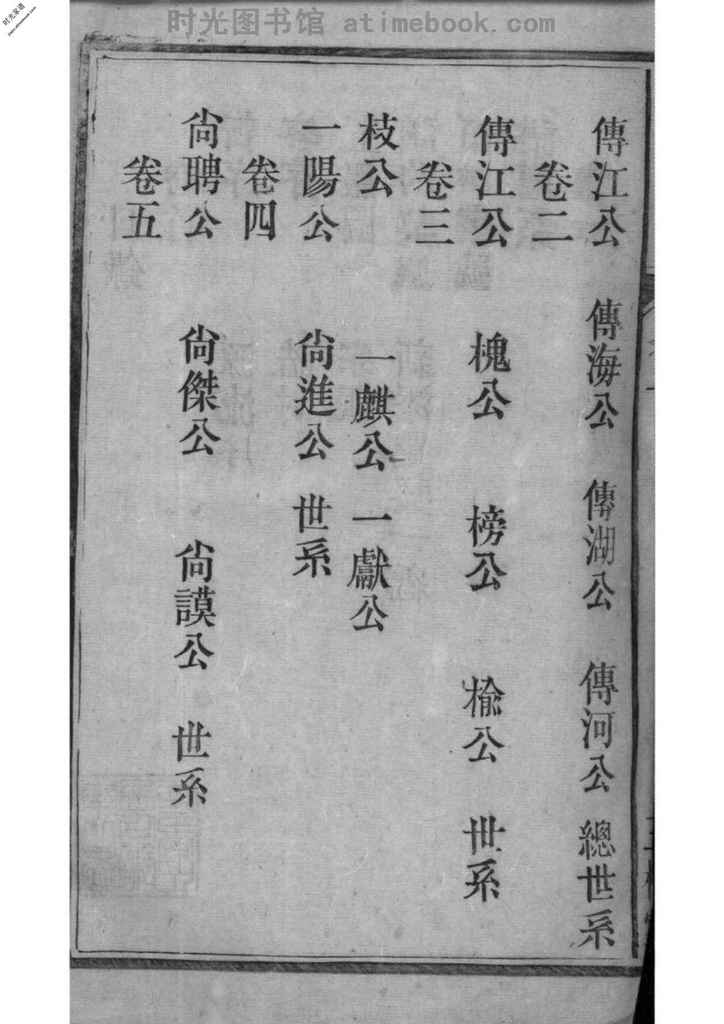 时光图书馆 atimebook.com
时光家谱
www.atimebook.com
傳江公 傳海公 傳湖公 傳河公 總世系
卷二
傳江公 槐公 榜公 檢公 世系
卷三
枝公 一麒公 一獻公
一陽公 尙進公 世系
卷四
尙聘公 尙傑公 尙謨公 世系
卷五